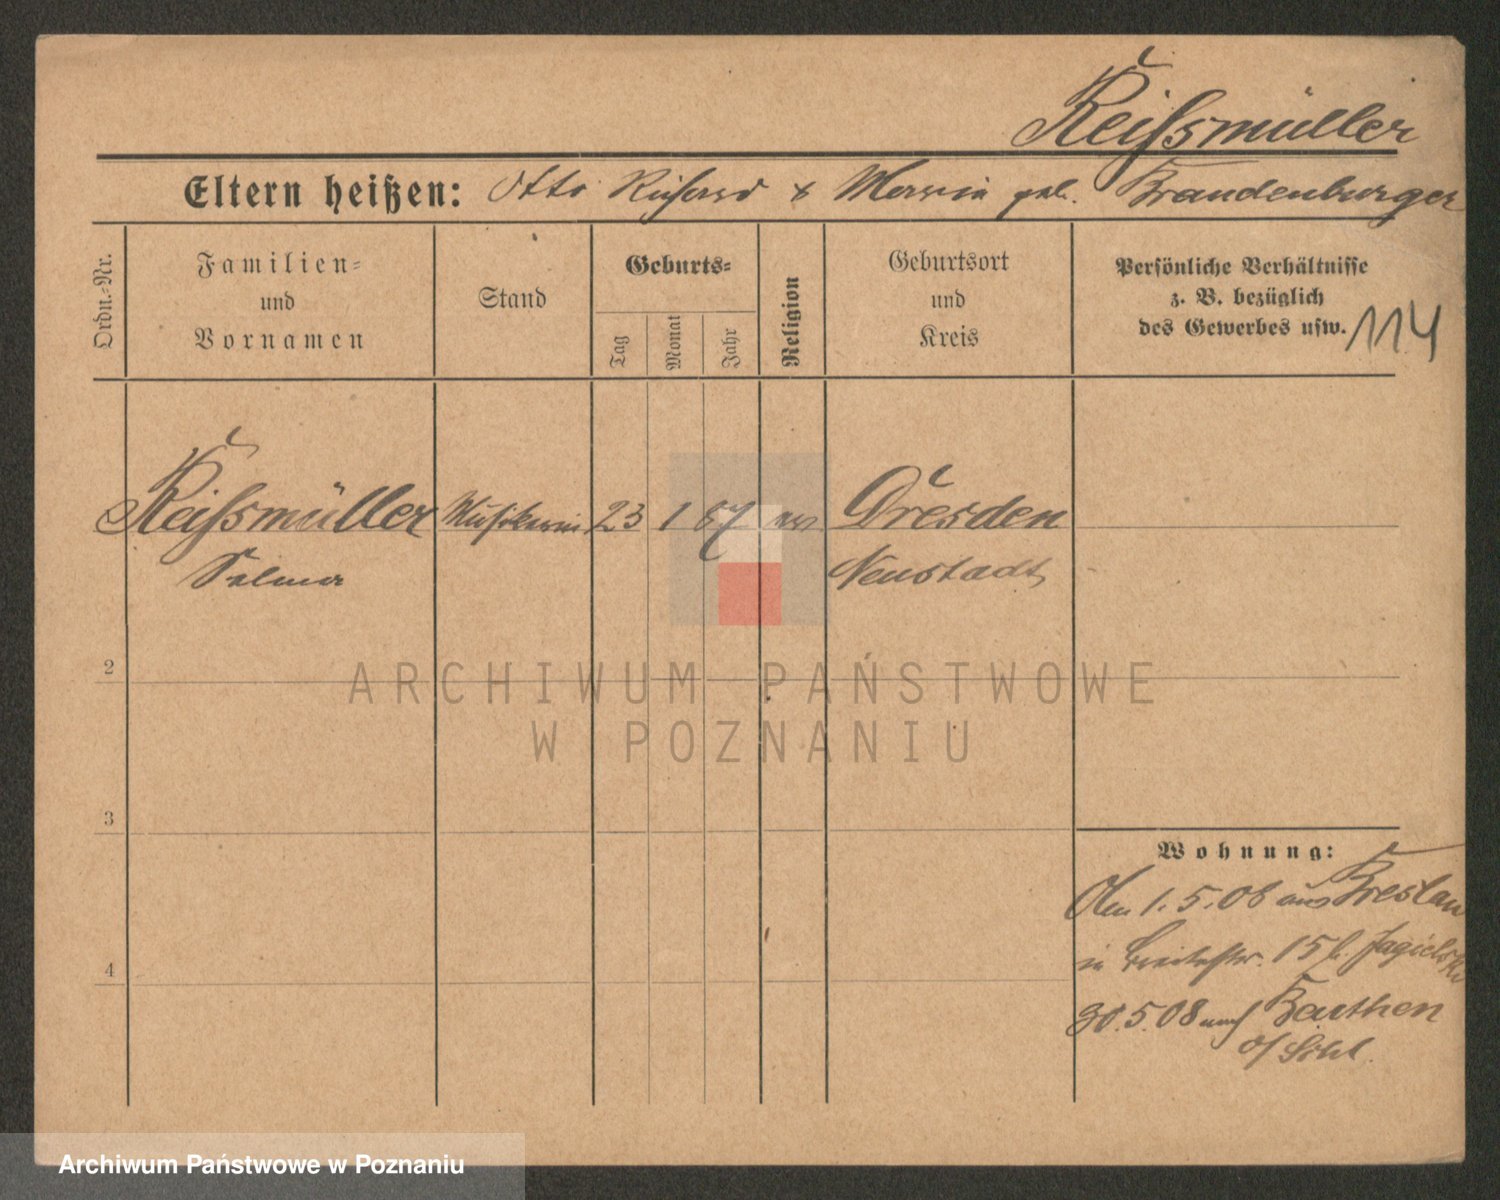 Reißmüller
Eltern heißen: Otto Richard & Maria geb. Brandenburger
Ordn.-Nr.
Familien-
und
Vornamen
Stand
Geburts-
Tag
Monat
Jahr
Religion
Geburtsort
und
Kreis
Persönliche Verhältnisse
z. B. bezüglich
des Gewerbes usw.
114
Reißmüller Musikerin 23 1 87 ev Dresden
Selma Neustadt
2
ARCHIWUM PAŃSTWOWE
W POZNANIU
3
Wohnung:
1.5.08 aus Breslau
in Breitestr. 15 b. Jagielski
4
30.5.08 nach Beuthen
o/Schl.
Archiwum Państwowe w Poznaniu